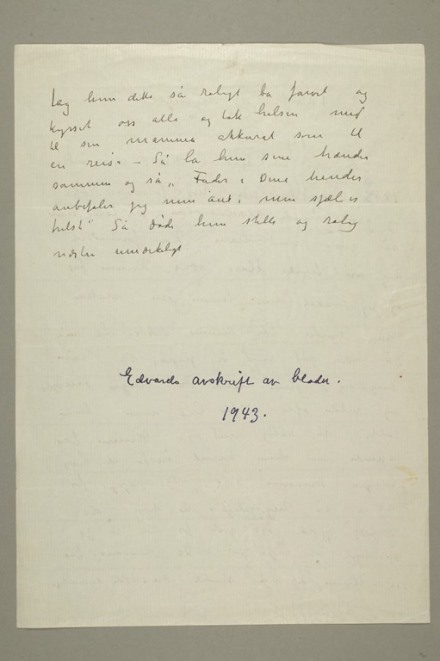 Læg hun dette så roligt ba farvel og
kysset oss alle og tok hilsen med
til sin mamma akkurat som til
en reise – Så la hun sine hænder
sammen og så „Fader i Dine hender
anbefaler jeg min ånd, min sjæl
Så døde hun stille og rolig
næsten umærkeligt
Edvards avskrift av blade.
1943.